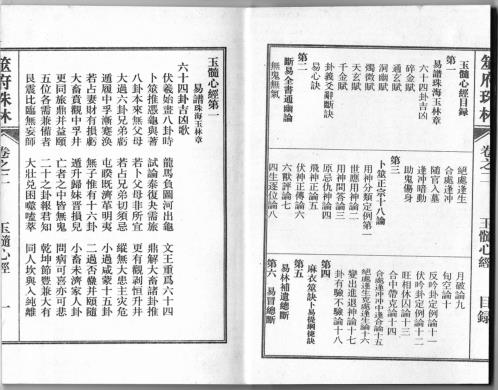 筮府珠林 卷之二 玉髓心經 目錄
玉髓心經目錄
第一
易譜珠海玉林章
六十四卦吉凶
碎金賦
通玄賦
洞幽賦
燭微賦
天玄賦
千金賦
卦義爻辭斷訣
易心訣
第二
斷易全書通幽論
無鬼無氣
絕處逢生
合處逢冲
隨官入墓
逢冲暗動
助鬼傷身
第三
卜筮正宗十八論
用神分類定例第一
世應用神論二
用神問答論三
原忌仇神論四
飛神正論五
伏神正傳論六
六獸評論七
四生逐位論八
月破論九
旬空論十
反吟卦定例論十一
伏吟卦定例論十二
旺相休囚論十三
合中帶克論十四
合處逢冲冲中逢合論十五
絕處逢生克處逢生論十六
變出進退神論十七
卦有驗不驗論十八
第四
麻衣筮訣卜易提綱捷訣
第五
易林補遺總斷
第六 易冒總斷
玉髓心經第一
易譜珠海玉林章
六十四卦吉凶歌
伏羲始畫八卦時 龍馬負圖河出龜 文王重爲六十四
卜筮推憑龜與蓍 試論泰復夬需旅 鼎解大畜諸卦推
八卦本來無父母 若卜父母非所宜 更有觀剝恒升井
大過六卦兄弟虧 若占兄弟切須忌 縱無大患主灾危
遯履中孚漸蹇渙 屯睽既濟革明夷 小過咸蒙十五卦
若占妻財有損虧 無子惟有十六卦 二過否蠱并頤隨
大畜賁觀中孚井 遯升歸妹晋損兌 小畜未濟家人卦
更同旅鼎并益頤 亡者之中皆無鬼 問病可喜亦可悲
五位各需兼備者 二十之卦報君知 乾坤節豐兼大有
艮震比臨無妄師 大壯兌困噬嗑萃 同人坎與入純離
筮府珠林 卷之二 玉髓心經 一